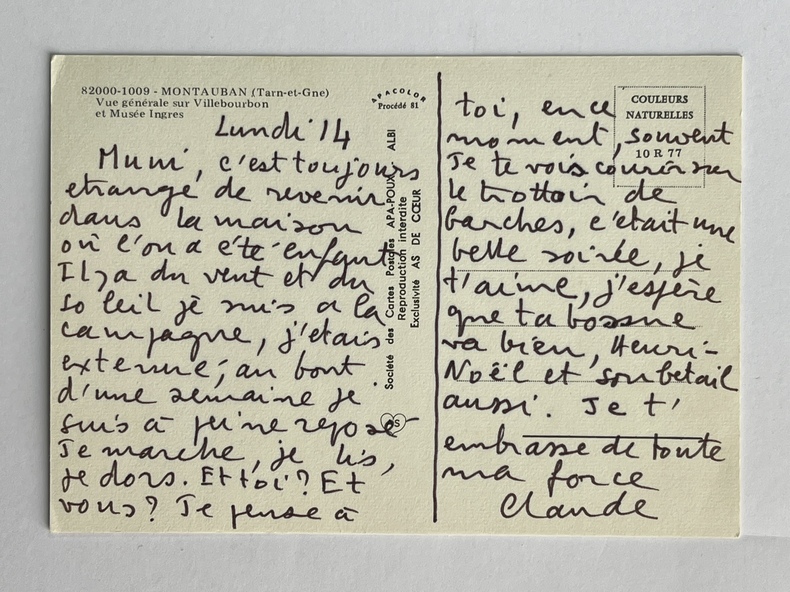 82000-1009 - MONTAUBAN (Tarn-et-Gne)
Vue générale sur Villebourbon
et Musée Ingres
APACOLOR
Procédé 81
Lundi 14
Muni, c'est toujours
etrange de revenir
dans la maison
où l'on a été enfant
Il y a du vent et du
soleil je suis a la
campagne, j'étais
extenue; au bout
d'une semaine je
suis à peine reposé
Je marche, je lis,
je dors. Et toi? Et
vous? Je pense à
Société des Cartes Postales APA-POUX ALBI
Reproduction interdite
Exclusivité AS DE CŒUR
AS
COULEURS
NATURELLES
10 R 77
toi, en ce
moment, souvent
Je te vois courir sur
le trottoir de
barches, c'était une
belle soirée, je
t'aime, j'espère
que ta bossue
va bien, Henri-
Noël et son betail
aussi. Je t'
embrasse de toute
ma force
Claude